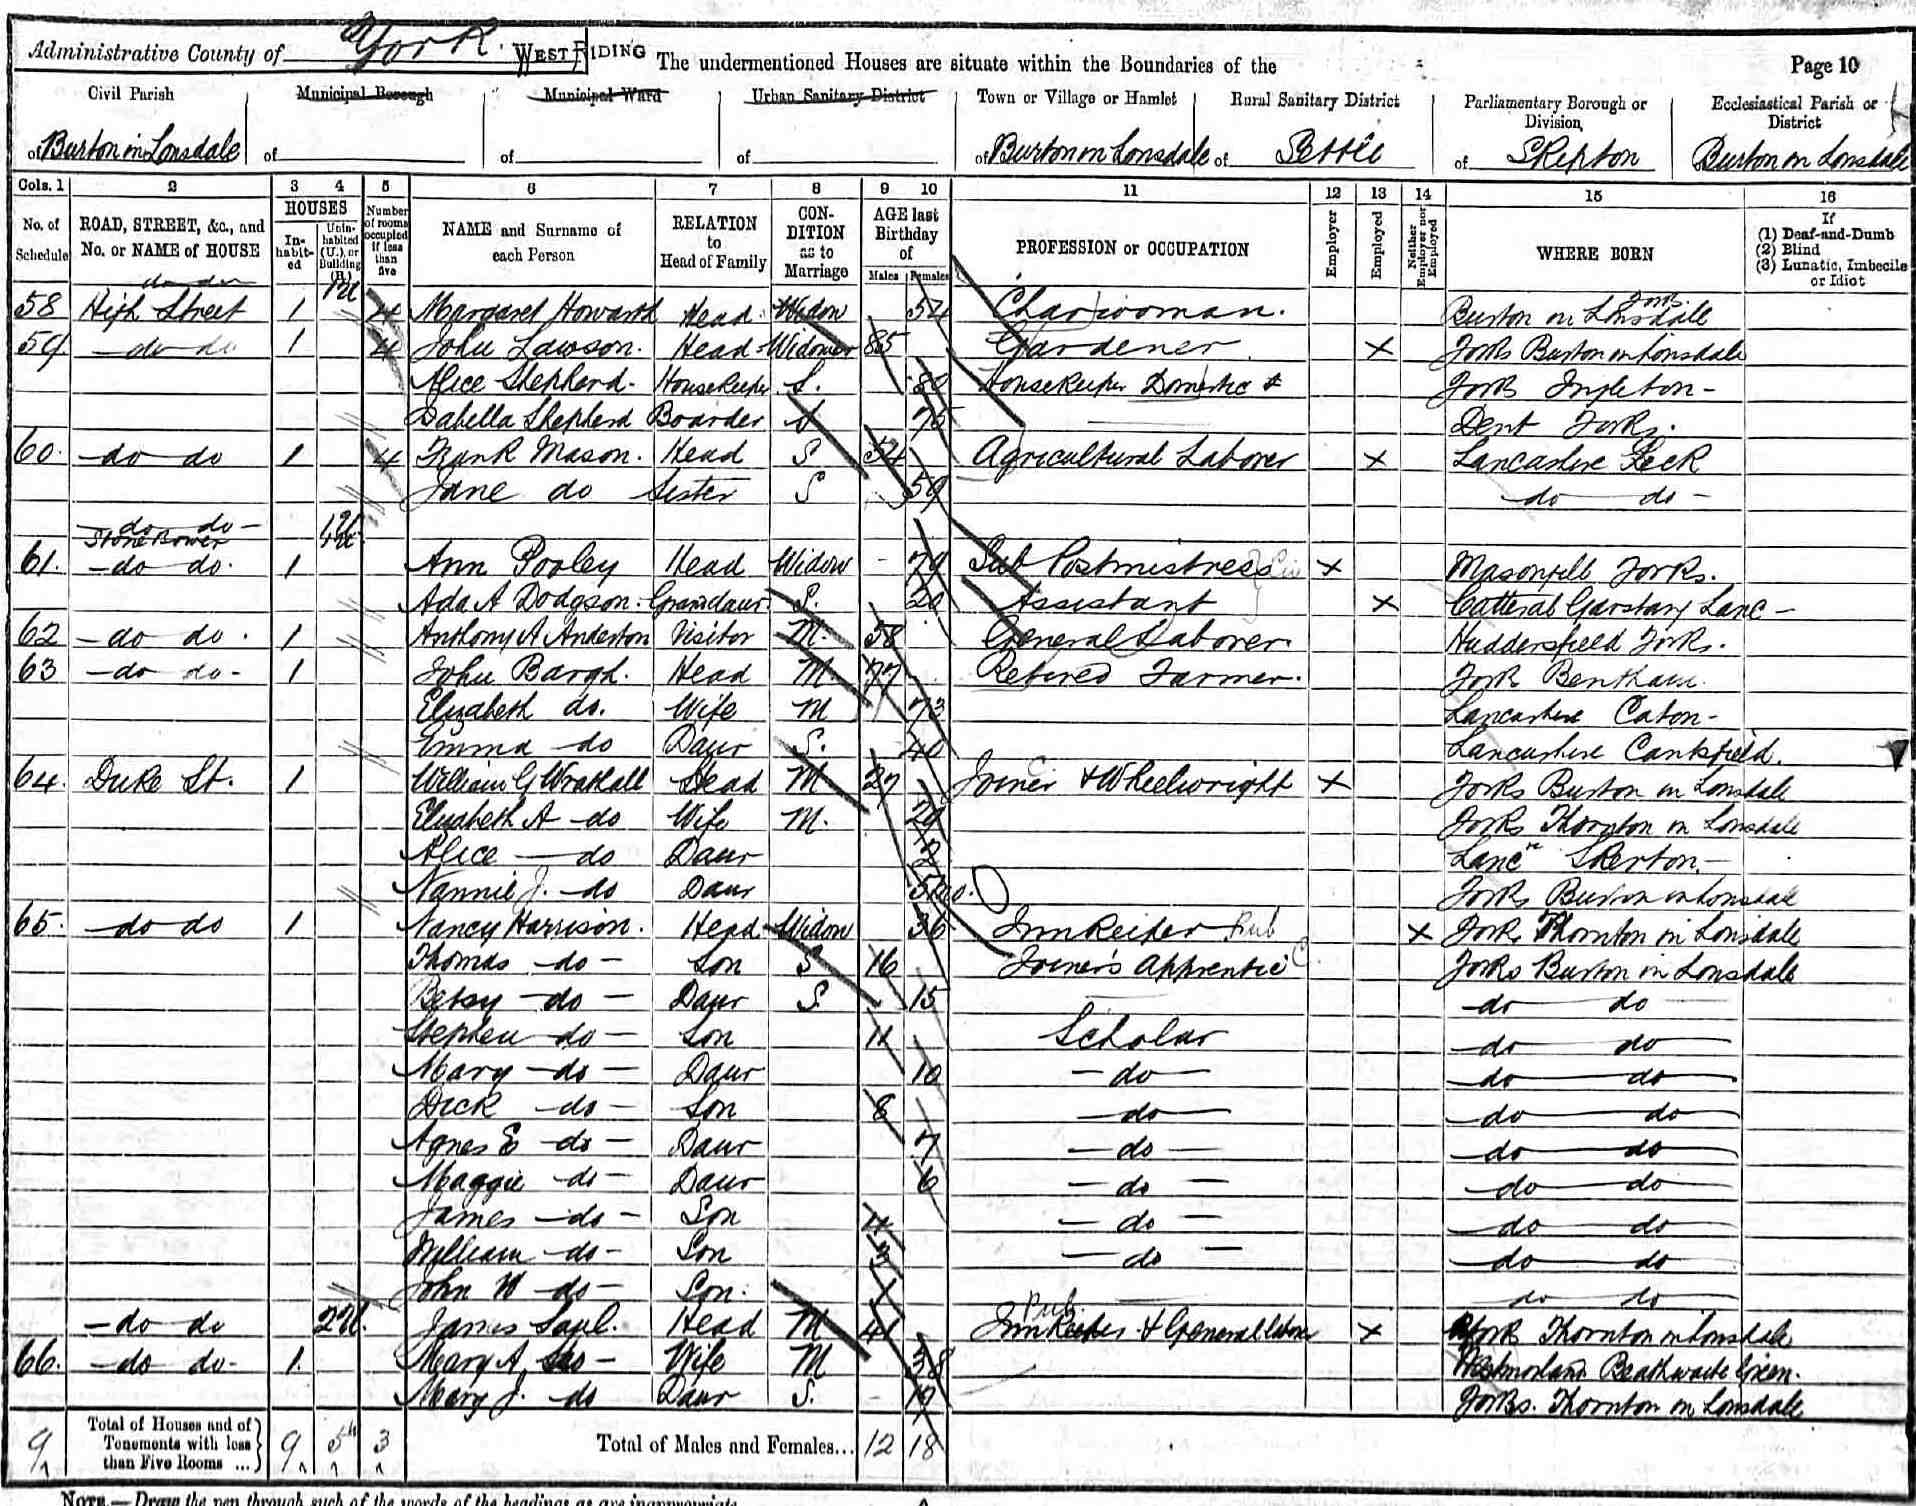 Administrative County of York WEST RIDING The undermentioned Houses are situate within the Boundaries of the Page 10
Civil Parish Municipal Borough Municipal Ward Urban Sanitary District Town or Village or Hamlet Rural Sanitary District Parliamentary Borough or Division Ecclesiastical Parish or District
of Burton in Lonsdale of of of of Burton in Lonsdale of Settle of Skipton Burton in Lonsdale
Cols. 1 2 3 4 5 6 7 8 9 10 11 12 13 14 15 16
No. of Schedule ROAD, STREET, &c., and No. or NAME of HOUSE HOUSES Inhabited Uninhabited (U.), or Building (B.) Number of rooms occupied if less than five NAME and Surname of each Person RELATION to Head of Family CONDITION as to Marriage AGE last Birthday of Males Females PROFESSION or OCCUPATION Employer Employed Neither Employer nor Employed WHERE BORN If (1) Deaf-and-Dumb (2) Blind (3) Lunatic, Imbecile or Idiot
do do 1U
58 High Street 1 4 Margaret Howarth Head Widow 54 Charwoman. Burton in Lonsdale Yorks.
59 do do 1 4 John Lawson. Head Widower 85 Gardener. X Yorks Burton in Lonsdale
Alice Shepherd. Housekeeper S. 80 Housekeeper Domestic Yorks Ingleton -
Isabella Shepherd Boarder S 75 Dent Yorks.
60. do do 1 4 Frank Mason. Head S 54 Agricultural Laborer X Lancashire Leck
Jane do Sister S 59 do do -
do do - 1U
Stone Bower 1U.
61. - do do. 1 Ann Pooley Head Widow - 79 Sub Postmistress X Yorks.
Ada A Dodgson. Grandaur. S. 20 Assistant X Catteral Garstang Lanc -
62 - do do. 1 Anthony A Anderton Visitor M. 58 General Laborer. Huddersfield Yorks.
63 - do do - 1 John Bargh. Head M 77 Retired Farmer. York Bentham
Elizabeth do. Wife M 73 Lancashire Caton -
Emma do Daur S. 40 Lancashire Cantsfield.
64. Duke St. 1 William G Wrathall Head M 27 Joiner & Wheelwright X Yorks Burton in Lonsdale
Elizabeth A do Wife M. Yorks Thornton in Lonsdale
Alice do Daur 2 Lancre Skerton -
Nannie J. do Daur 5mo. Yorks Burton in Lonsdale
65. do do 1 Nancy Harrison. Head Widow 36 Innkeeper Pub X Yorks Thornton in Lonsdale
Thomas do - Son S 16 Joiner's Apprentice Yorks Burton in Lonsdale
Betsy - do - Daur S 15 do do
Stephen do - Son 11 Scholar do do
Mary - do - Daur 10 - do - do do
Dick do - Son 8 do do do
Agnes E do - Daur 7 - do - do do
Maggie do - Daur 6 - do - do do
James - do - Son 4 - do - do do
William - do - Son 3 - do - do do
John W - do - Son. 1 do do
- do do 2U. James Saul. Head M 41 Pub. Innkeeper & General X York Thornton in Lonsdale
66. - do do - 1. Mary A. do - Wife M 38 Westmorland Beathwaite Green.
Mary J. do Daur S. - Yorks. Thornton in Lonsdale
9 Total of Houses and of Tenements with less than Five Rooms ... 9 5U 3 Total of Males and Females... 12 18
NOTE.—Draw the pen through such of the words of the headings as are inappropriate.